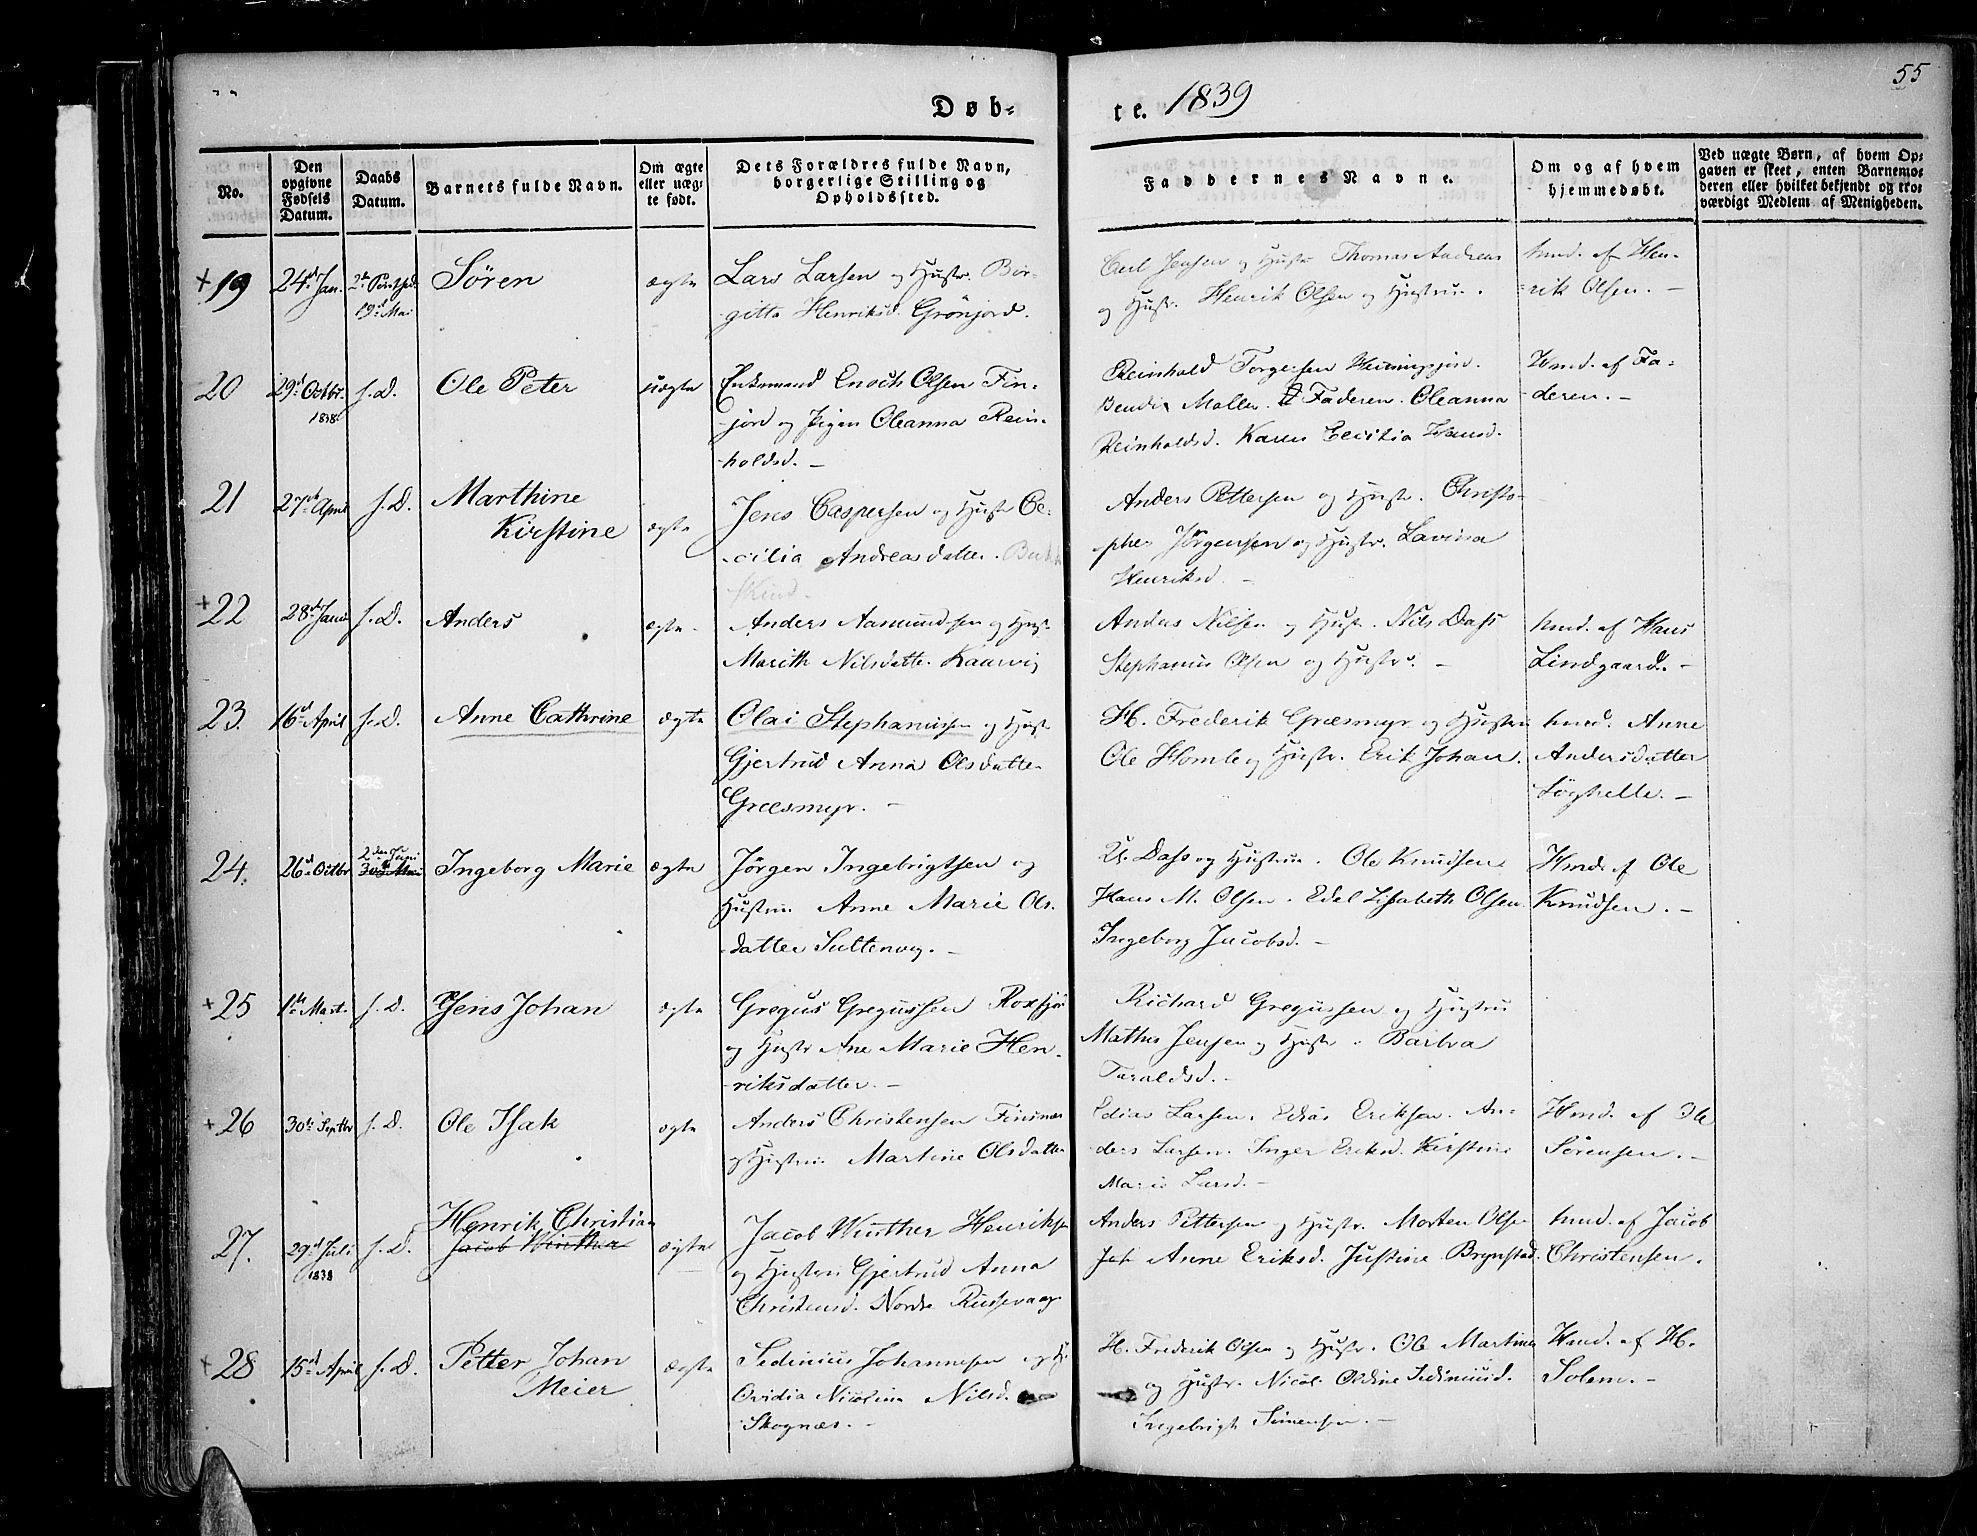 55
Døb-
te. 1839
No.
Den opgivne Fødsels Datum.
Daabs Datum.
Barnets fulde Navn.
Om ægte eller uægte født.
Dets Forældres fulde Navn, borgerlige Stilling og Opholdssted.
Faddernes Navne.
Om og af hvem hjemmedøbt.
Ved uægte Børn, af hvem Opgaven er skeet, enten Barnemoderen eller hvilket bekjendt og troværdigt Medlem af Menigheden.
+ 19
24d Jan.
19d Mai
Søren
ægte
Lars Larsen og Hustr. Bir-
gitta Henriksd. Grönjord.
Carl Jensen og Hustr Thomas Andreas
og Hustr. Henrik Olsen og Hustru.
hmd. af Hen-
rik Olsen. -
20
29d Octbr.
1838
s. D.
Ole Peter
uægte
Enkemand Enoch Olsen Fin-
jord og Pigen Oleanna Rein-
holdsd. -
Reinhold Torgersen
Bendix Moller. Faderen. Oleanna
Reinholdsd. Karen Cecilia Hansd.
Hmd. af Fa-
deren. -
21
27de April
s. D.
Marthine
Kirstine
ægte
Jens Caspersen og Hustr Ce-
cilia Andreasdatter.
Anders Pettersen og Hustr. Christo-
pher Jörgensen og Hustr. Lavina
Henriksd. -
+ 22
28d Janu
s. D.
Anders
ægte
Anders Aasmundsen og Hust
Marith Nilsdatte. Kaarvig
Anders Nilsen og Hustr. Nils Dass
Stephanus Olsen og Hustr. -
hmd. af Hans
Lindgaard. -
23.
16d April
s. D.
Anne Cathrine
ægte
Olai Stephanussen og Hust
Gjertrud Anna Olsdatte
Græsmyr. -
H. Frederik Græsmyr og Hustru
Ole Homle og Hustr. Erik Johan.
hmd. Anne
Andersdatter
Løghelle. -
24.
26d Octbr
2den Juni
Ingeborg Marie
ægte
Jörgen Ingebrigtsen og
Hustru Anne Marie Ols-
datter Sultenvig. -
U. Dass og Hustru. Ole Knudsen
Hans M. Olsen. Edel Lisabeth Olsen
Ingeborg Jacobsd. -
Hmd. af Ole
Knudsen. -
+ 25
1te Mart.
s. D.
Jens Johan
ægte
Gregus Gregussen Roxfjor
og Hustr Ane Marie Hen-
riksdatter. -
Richard Gregussen og Hustru
Mathis Jensen og Hustr. Barbra
Taraldsd. -
+ 26
30te Septbr
s. D.
Ole Isak
ægte
Anders Christensen Finsnæs
og Hustru Martine Olsdatter
Edias Larsen. Edias Eriksen. An-
ders Larsen. Inger Eriksd. Kirstine
Marie Larsd. -
Hmd. af Ole
Sörensen. -
27.
29d Juli
1838
s. D.
Henrik Christian
Jacob Winther
ægte
Jacob Winther Henriks
og Hustru Gjertrud Anna
Christensd. Nordre Russevaag
Anders Pettersen og Hustr. Morten Olse
Joh Anne Eriksd. Justine Brynstad.
hmd. af Jacob
Christensen.
+ 28
15d April
s. D.
Petter Johan
Meier
ægte
Sedinius Johannesen og H
Ovidia Nicolina Nilsd.
Skognæs. -
H. Frederik Olsen og Hustr. Ole Martinus
og Hustr. Nicol. Oldine Sediniusd.
Ingebrigt Simensen. -
Hmd. af H.
Solem. -